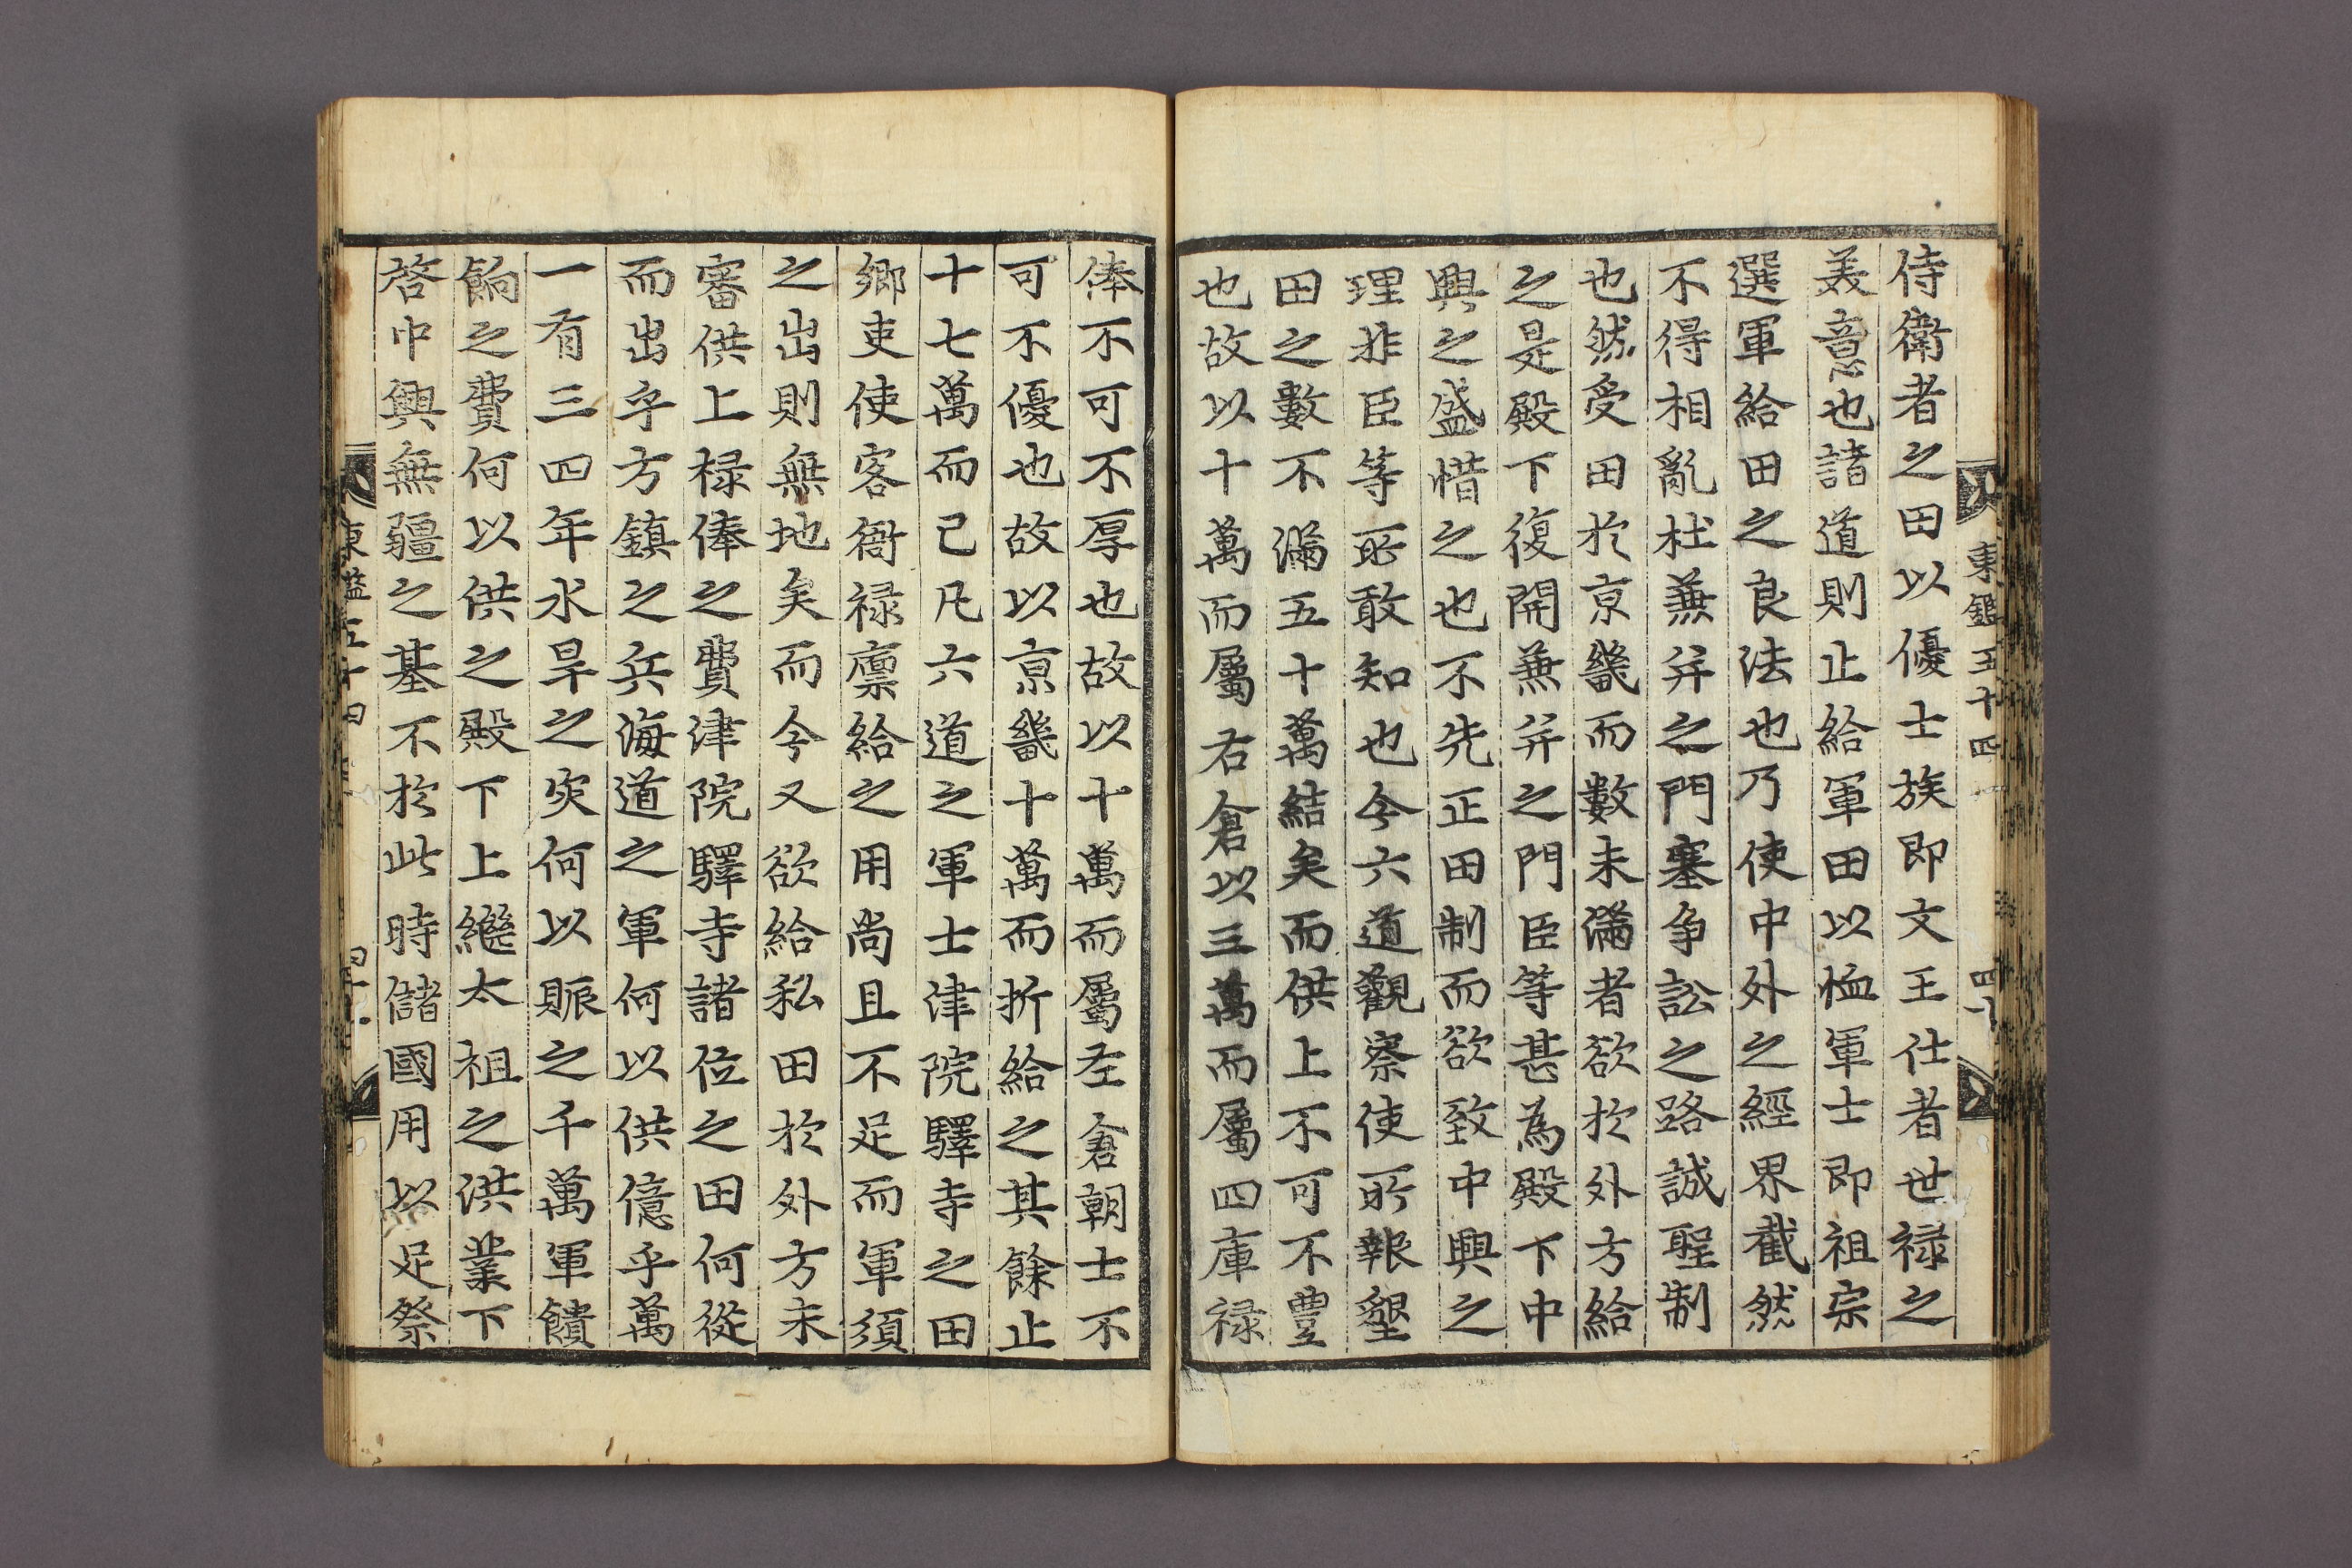 東鑑五十四
四十
侍衛者之田以優士族即文王仕者世禄之
美意也諸道則止給軍田以恤軍士即祖宗
選軍給田之良法也乃使中外之經界截然
不得相亂杜兼并之門塞爭訟之路誠聖制
也然受田於京畿而數未滿者欲於外方給
之是殿下復開兼并之門臣等甚為殿下中
興之盛惜之也不先正田制而欲致中興之
理非臣等所敢知也今六道觀察使所報墾
田之數不滿五十萬結矣而供上不可不豊
也故以十萬而屬右倉以三萬而屬四庫禄
俸不可不厚也故以十萬而屬左倉朝士不
可不優也故以京畿十萬而折給之其餘止
十七萬而已凡六道之軍士津院驛寺之田
鄉吏使客衙禄廪給之用尚且不足而軍須
之出則無地矣而今又欲給私田於外方未
審供上禄俸之費津院驛寺諸位之田何從
而出乎方鎮之兵海道之軍何以供億乎萬
一有三四年水旱之灾何以賑之千萬軍饋
餉之費何以供之殿下上繼太祖之洪業下
啓中興無疆之基不於此時儲國用以足祭
東鑑五十四